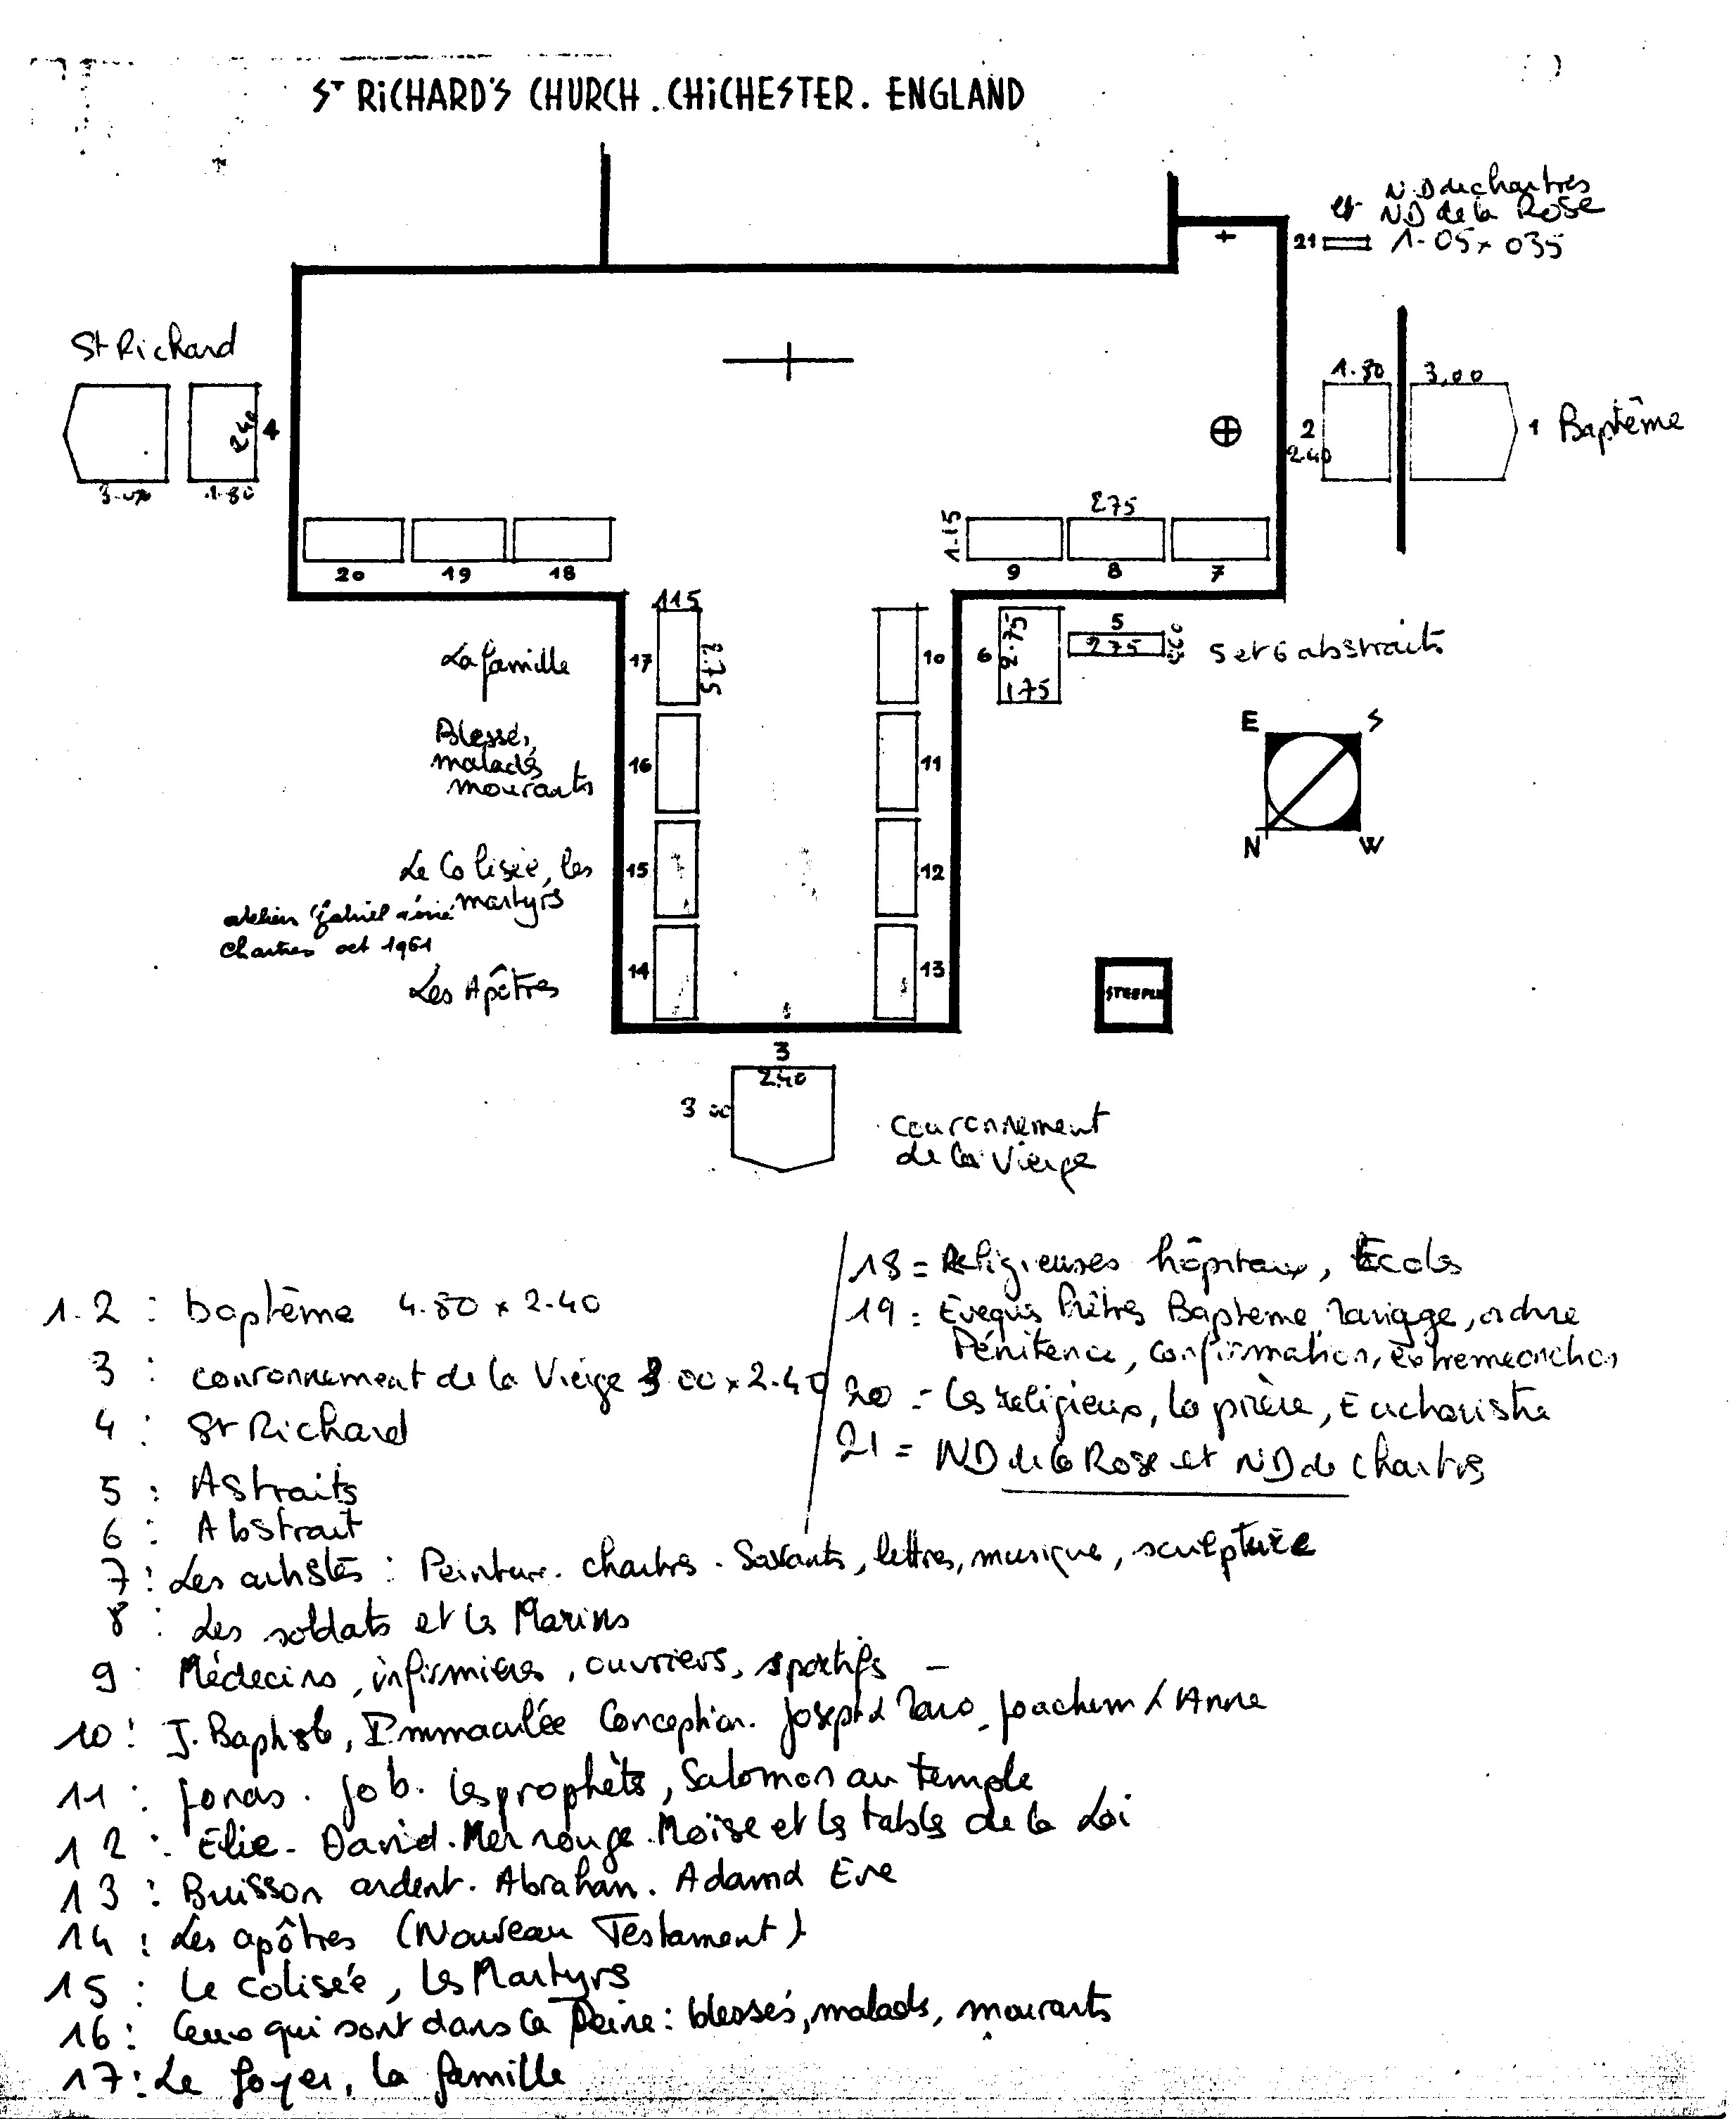 ST RiCHARD'S CHURCH. CHiCHESTER. ENGLAND
et N.D de chartres
ND de la Rose
21 1.05 x 035
St Richard
4
240
3.00 1.80
1.80 3,00
2
240
1 Baptême
275
1.15
20 19 18
9 8 7
115
La famille 17
2.75
10
6 2.75
175
5
275
5 et 6 abstraits
Blessés,
malades
mourants
16
11
E S
N W
Le Colisée, les
martyrs
15
12
Chartres oct 1961
Les Apôtres
14
13
STEEPLE
3
2.40
3 00
Couronnement
de la Vierge
1.2 : baptême 4.80 x 2.40
3 : couronnement de la Vierge 3 00 x 2.40
4 : St Richard
5 : Astraits
6 : Abstrait
7 : Les artistes : Peinture. Chartres. Savants, lettres, musique, sculpture
8 : Les soldats et les Marins
9 : Médecins, infirmières, ouvriers, sportifs –
10 : J. Baptiste, Immaculée Conception. Joseph & Marie, Joachim & Anne
11 : Jonas. Job. les prophètes, Salomon au temple
12 : Elie - David. Mer rouge. Moïse et les tables de la Loi
13 : Buisson ardent. Abraham. Adam & Eve
14 : Les apôtres (Nouveau Testament)
15 : Le colisée, les Martyrs
16 : Ceux qui sont dans la Peine : blessés, malades, mourants
17 : Le foyer, la famille
18 = Religieuses hôpitaux, Ecoles
19 : Eveques Prêtres Bapteme, Mariage, ordre
Pénitence, confirmation, extreme onction
20 = les religieux, la prière, Eucharistie
21 = ND de la Rose et ND de Chartres